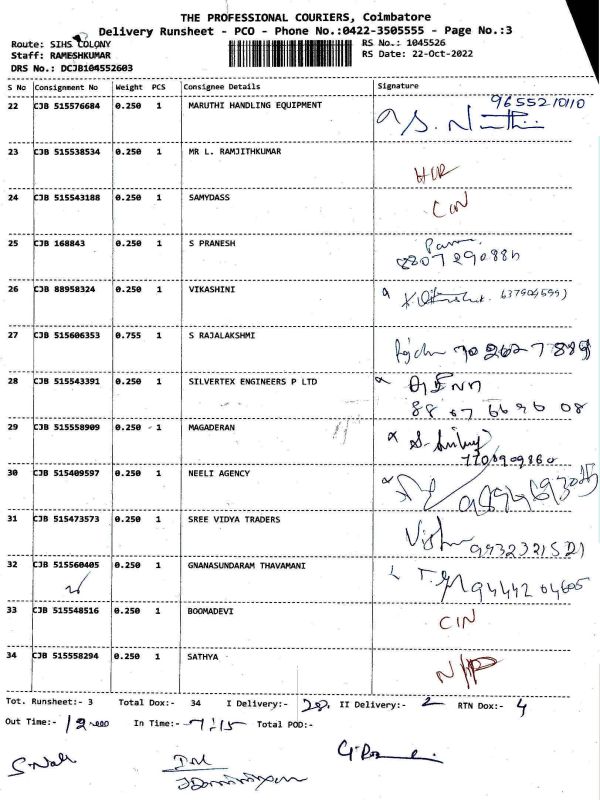 THE PROFESSIONAL COURIERS, Coimbatore
Delivery Runsheet - PCO - Phone No.:0422-3505555 - Page No.:3
Route: SIHS COLONY RS No.: 1045526
Staff: RAMESHKUMAR RS Date: 22-Oct-2022
DRS No.: DCJB104552603
S No Consignment No Weight PCS Consignee Details Signature
22 CJB 515576684 0.250 1 MARUTHI HANDLING EQUIPMENT 9655210110
23 CJB 515538534 0.250 1 MR L. RAMJITHKUMAR
24 CJB 515543188 0.250 1 SAMYDASS CIN
25 CJB 168843 0.250 1 S PRANESH
26 CJB 88958324 0.250 1 VIKASHINI
27 CJB 515606353 0.755 1 S RAJALAKSHMI
28 CJB 515543391 0.250 1 SILVERTEX ENGINEERS P LTD
29 CJB 515558909 0.250 1 MAGADERAN
30 CJB 515409597 0.250 1 NEELI AGENCY
31 CJB 515473573 0.250 1 SREE VIDYA TRADERS
32 CJB 515560405 0.250 1 GNANASUNDARAM THAVAMANI 9444204605
33 CJB 515548516 0.250 1 BOOMADEVI CIN
34 CJB 515558294 0.250 1 SATHYA N/P
Tot. Runsheet:- 3 Total Dox:- 34 I Delivery:- 28 II Delivery:- 2 RTN Dox:- 4
Out Time:- In Time:- 7:15 Total POD:-